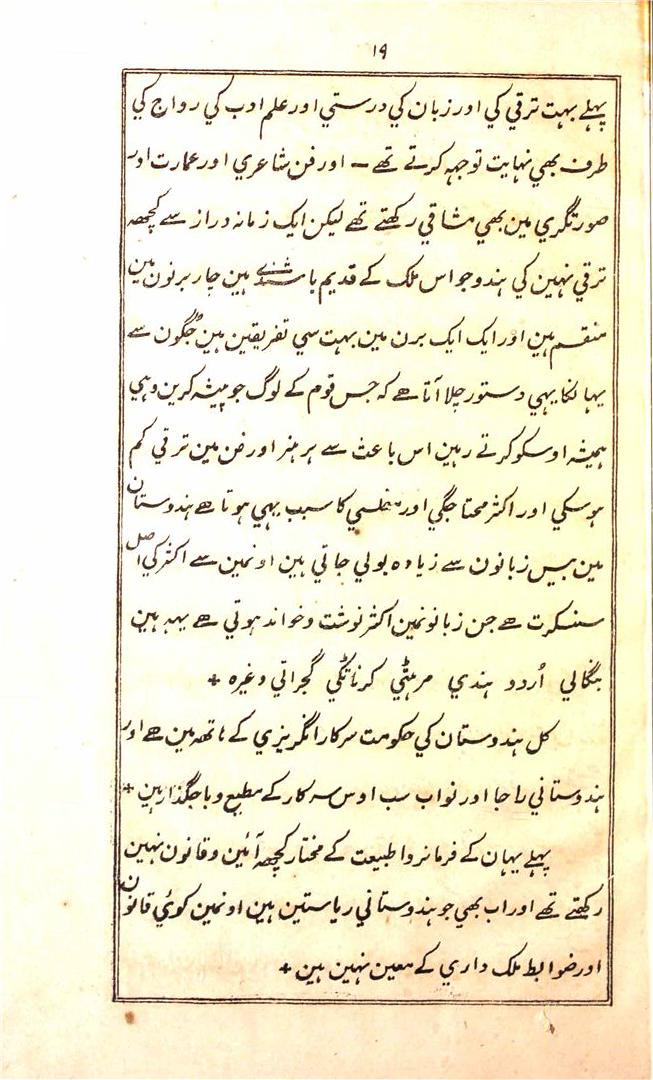 ١٩
پہلے بہت ترقي كي اور زبان كي درستي اور علم ادب كي رواج كي
طرف بھي نہايت توجہہ كرتے تھے — اور فن شاعري اور عمارت اور
صورتگري مين بھي مشاقي ركھتے تھے ليكن ايک زمانہ دراز سے كچھہ
ترقي نہين كي ہندو جو اس ملک كے قديم باشندے ہين چار برنون مين
منقسم ہين اور ايک ايک برن مين بہت سي تفريقين ہين جگون سے
يہانكا يہي دستور چلا آتا ہے كہ جس قوم كے لوگ جو پيشہ كرين وہي
ہميشہ اوسكو كرتے رہين اس باعث سے ہر ہنر اور فن مين ترقي كم
ہوسكي اور اكثر محتاجگي اور مفلسي كا سبب يہي ہوتا ہے ہندوستان
مين بيس زبانون سے زيادہ بولي جاتي ہين اونمين سے اكثر كي اصل
سنسكرت ہے جن زبانونمين اكثر نوشت و خواند ہوتي ہے يہہ ہين
بنگالي اُردو ہندي مرہٹي كرناٹكي گجراتي وغيرہ +
كل ہندوستان كي حكومت سركار انگريزي كے ہاتھہ مين ہے اور
ہندوستاني راجا اور نواب سب اوس سركار كے مطيع و باجگذار ہين +
پہلے يہان كے فرمانروا طبيعت كے مختار كچھہ آئين و قانون نہين
ركھتے تھے اور اب بھي جو ہندوستاني رياستين ہين اونمين كوئي قانون
اور ضوابط ملک داري كے معين نہين ہين +